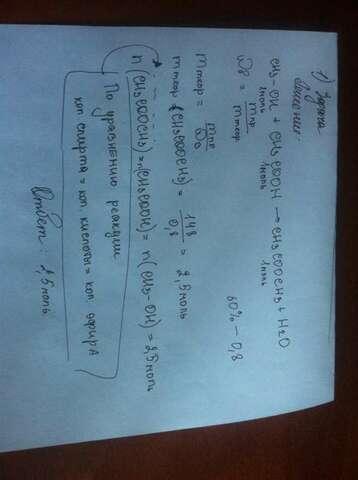 1) Задача
Решение:
CH₃-OH + CH₃COOH → CH₃COOCH₃ + H₂O
1моль 1моль 1моль
ωв = mпр / mтеор
80% - 0,8
mтеор = mпр / ωв
mтеор (CH₃COOCH₃) = 148 / 0,8 = 2,5моль
n(CH₃COOCH₃) = n(CH₃COOH) = n(CH₃-OH) = 2,5моль
По уравнению реакции
кол спирта = кол кислоты = кол эфира
Ответ: 2,5моль